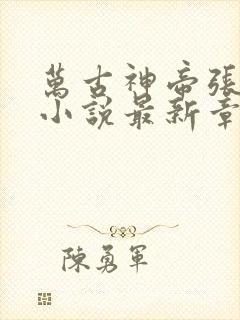 萬古神帝張
小說最新章
陳勇軍